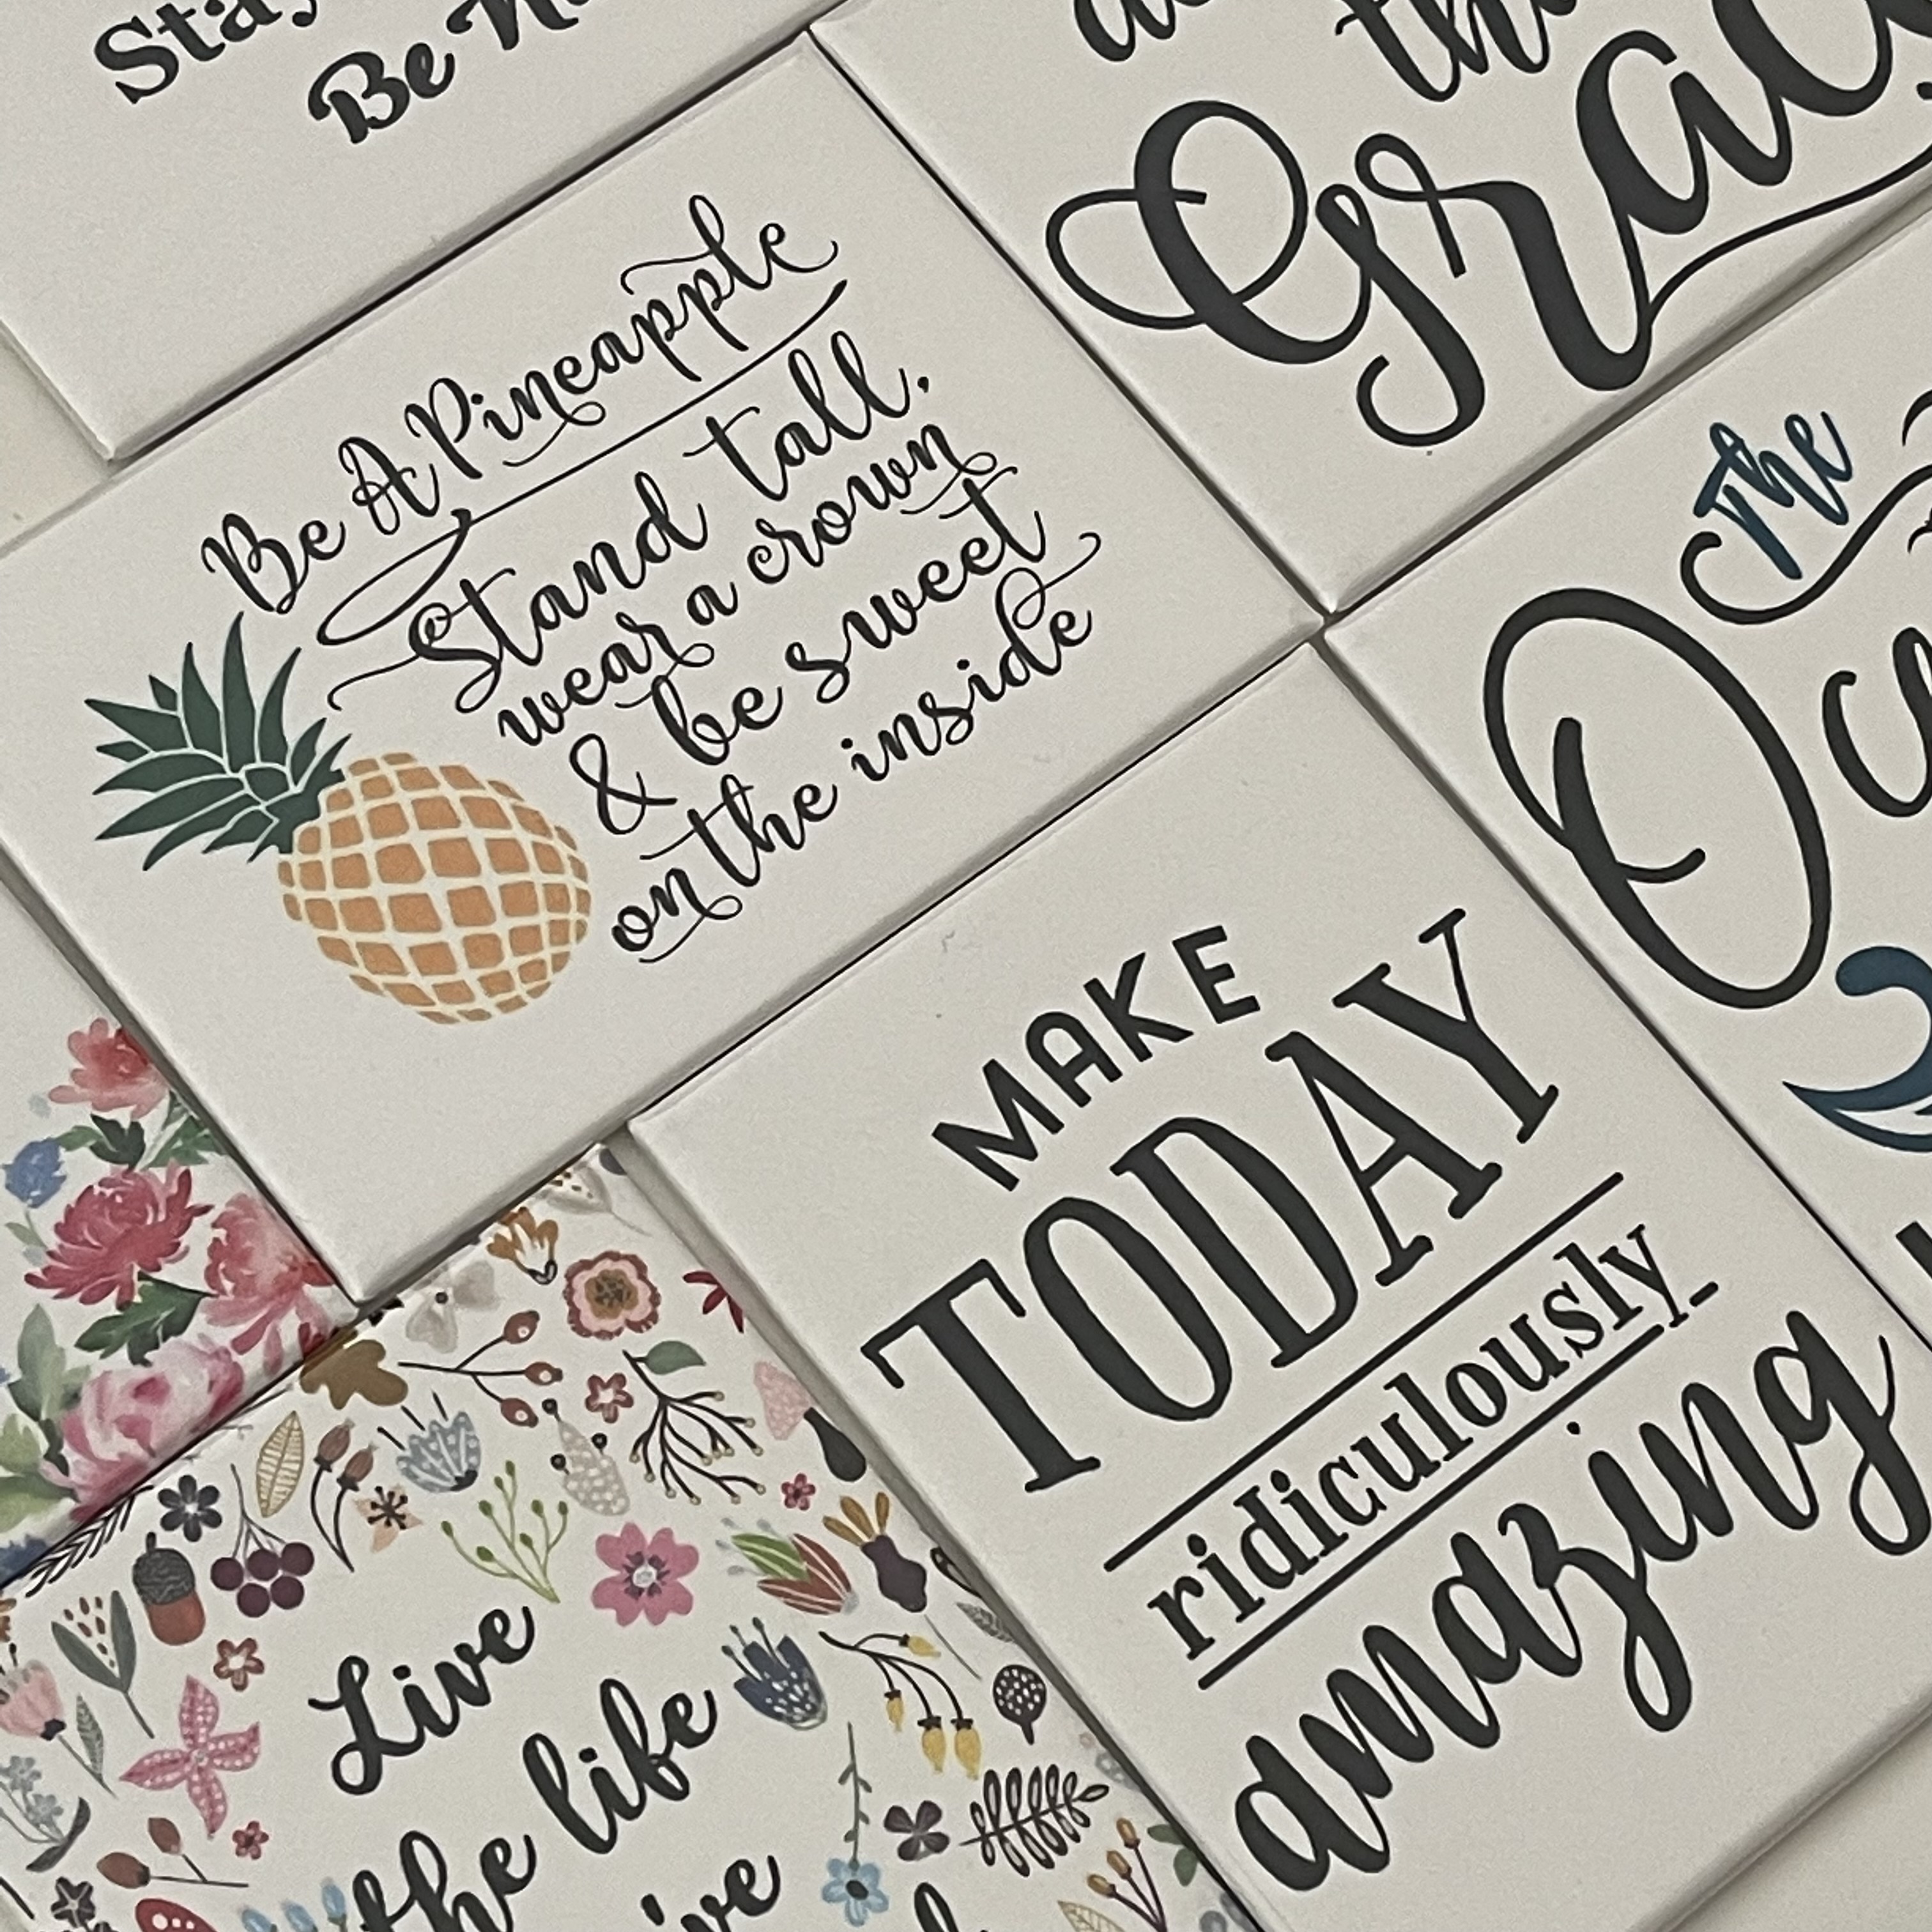 Stay
Be
Grac
Be A Pineapple
Stand tall,
wear a crown
& be sweet
on the inside
The
MAKE
TODAY
ridiculously
amazing
Live
the life